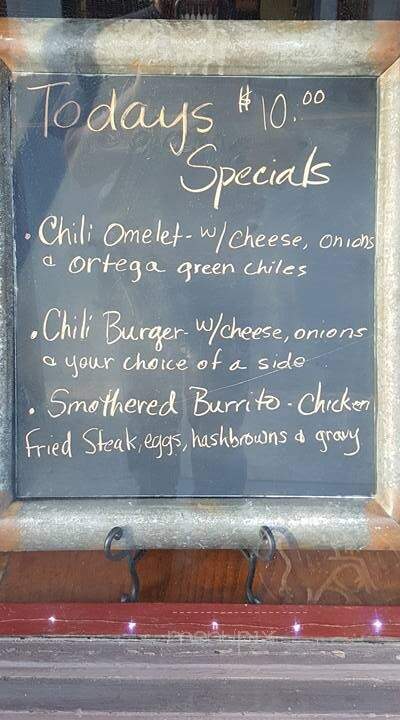 Todays $10.00
Specials
• Chili Omelet - w/cheese, onions
& ortega green chiles
• Chili Burger - w/cheese, onions
& your choice of a side
• Smothered Burrito - Chicken
fried Steak, eggs, hashbrowns & gravy
menupix